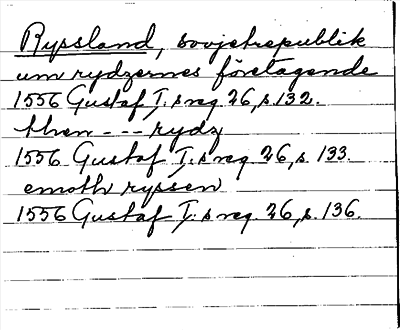 Ryssland, sovjetrepublik
um rydzernes företagende
1556 Gustaf I:s reg. 26, s. 132.
then --- rydz
1556 Gustaf I:s reg. 26, s. 133.
emoth ryssen
1556 Gustaf I:s reg. 26, s. 136.